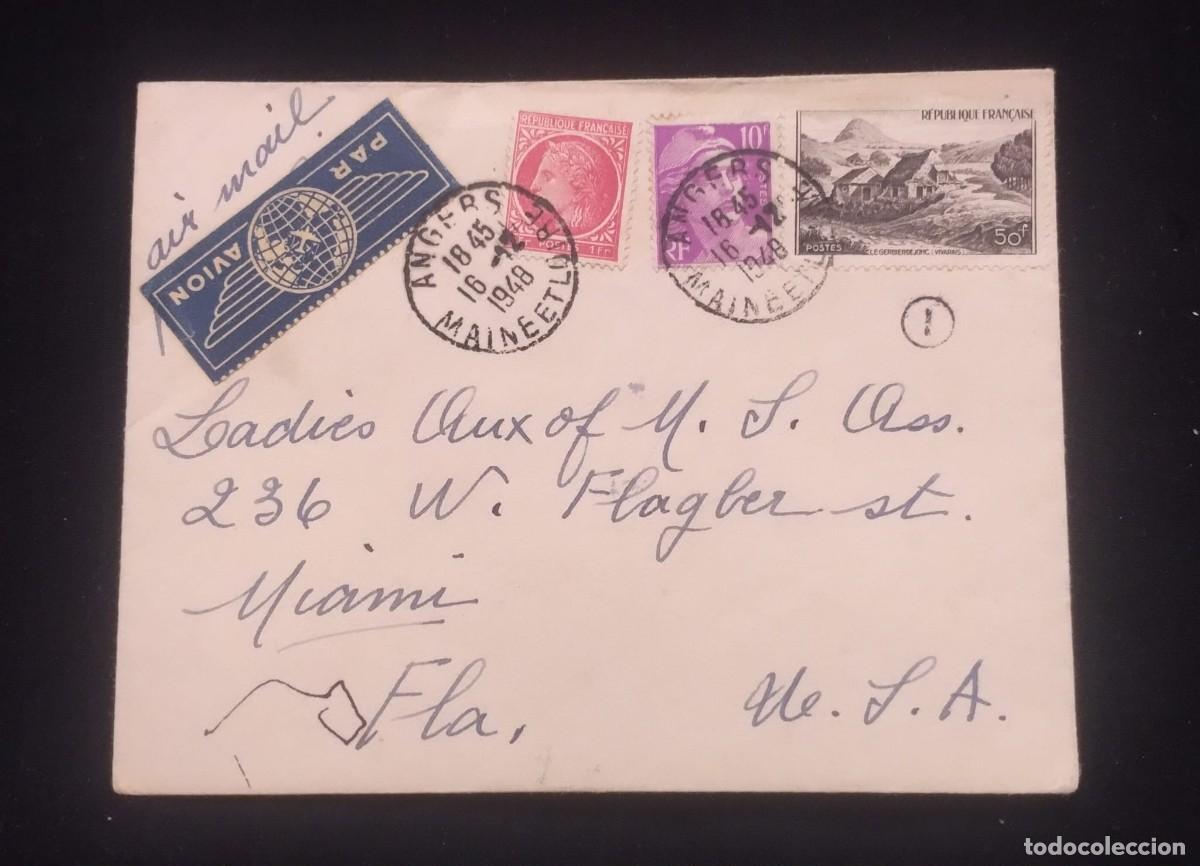 air mail
PAR AVION
RÉPUBLIQUE FRANÇAISE
POSTES 1 Fr
10F
POSTES
RF
RÉPUBLIQUE FRANÇAISE
POSTES
LE GERBIER DE JONC (VIVARAIS)
50F
ANGERS
18.45
16 -12
1948
MAINE ET LOIRE
ANGERS
18.45
16 -12
1948
MAINE ET L
1
Ladies Aux of M. S. Ass.
236 W. Flagber st.
Miami
Fla,
U. S. A.
todocoleccion